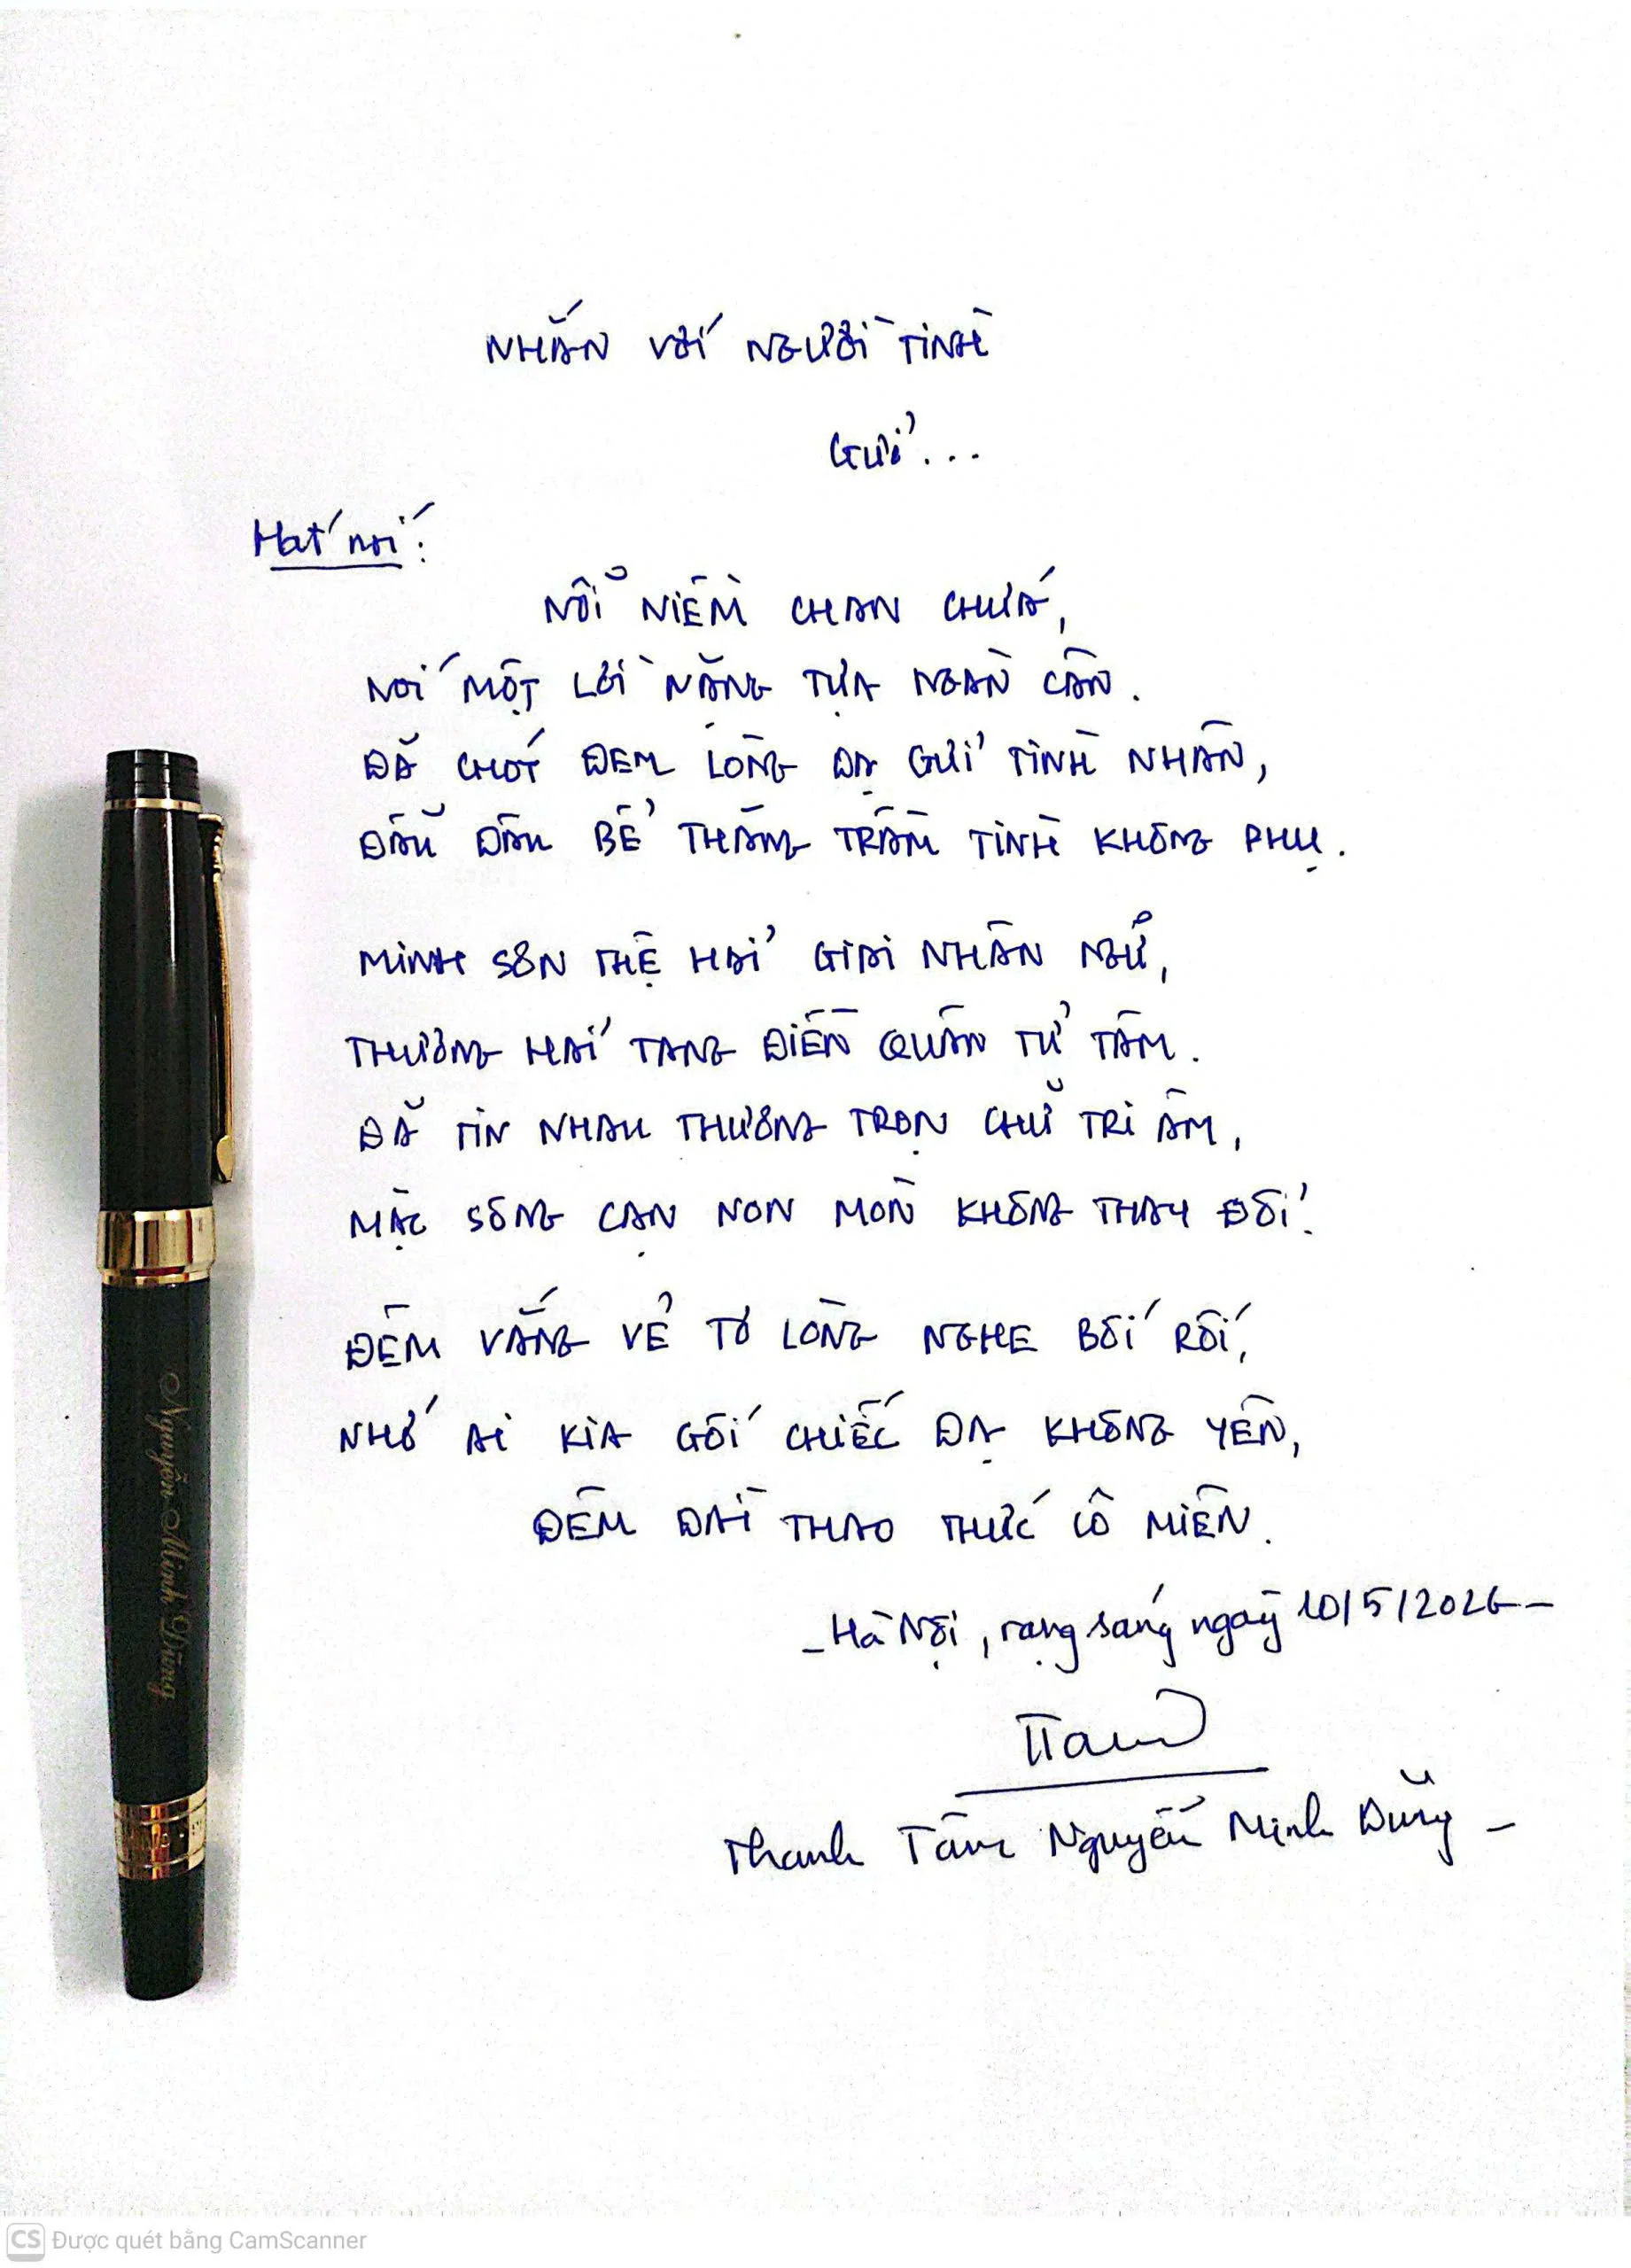 NHẮN VỚI NGƯỜI TÌNH
GỬI...
Hát nói:
NỖI NIỀM CHAN CHỨA,
NÓI MỘT LỜI NẶNG TỰA NGÀN CÂN.
ĐÃ CHÓT ĐEM LÒNG DẠ GỬI TÌNH NHÂN,
DẪU DÂU BỂ THĂNG TRẦM TÌNH KHÔNG PHỤ.
MINH SƠN THỆ HẢI GIAI NHÂN NGỮ,
THƯƠNG HẢI TANG ĐIỀN QUÂN TỬ TÂM.
ĐÃ TIN NHAU THƯƠNG TRỌN CHỮ TRI ÂM,
MẶC SÔNG CẠN NON MÒN KHÔNG THAY ĐỔI!
ĐÊM VẮNG VẺ TƠ LÒNG NGHE BỐI RỐI,
NHỚ AI KIA GỐI CHIẾC DẠ KHÔNG YÊN,
ĐÊM DÀI THAO THỨC CÔ MIÊN.
- Hà Nội, rạng sáng ngày 10/5/2026 -
Thanh Tâm Nguyễn Minh Dũng -
Nguyễn Minh Dũng
CS Được quét bằng CamScanner